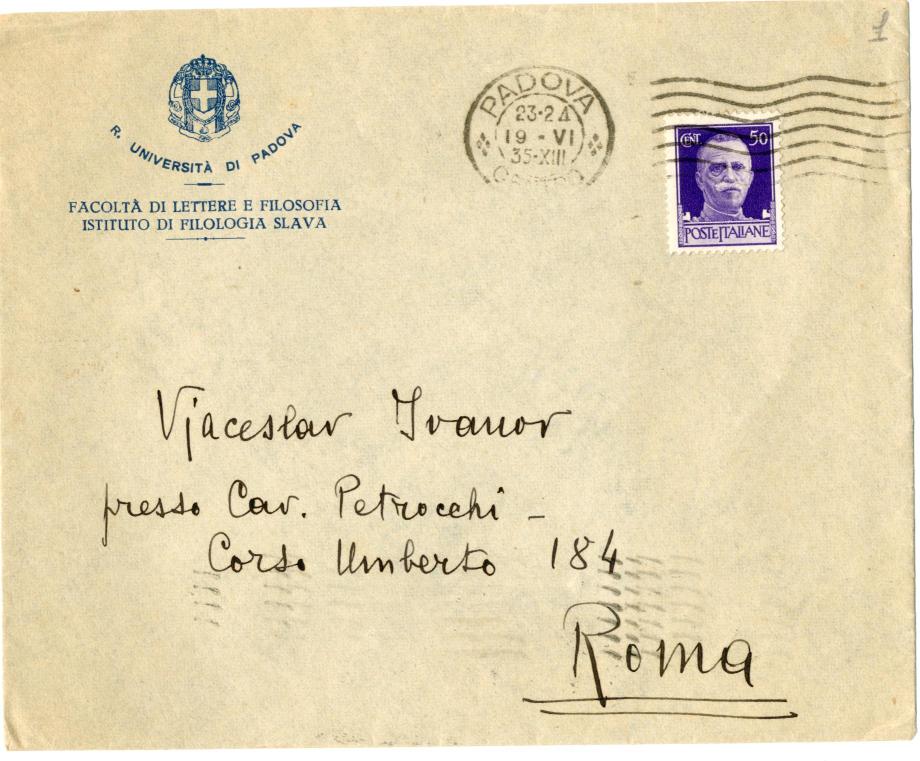 1
R. UNIVERSITÀ DI PADOVA
FACOLTÀ DI LETTERE E FILOSOFIA
ISTITUTO DI FILOLOGIA SLAVA
PADOVA
23-24
19 - VI
35-XIII
CENT. 50
POSTE ITALIANE
Vjaceslav Ivanov
presso Cav. Petrocchi -
Corso Umberto 184
Roma